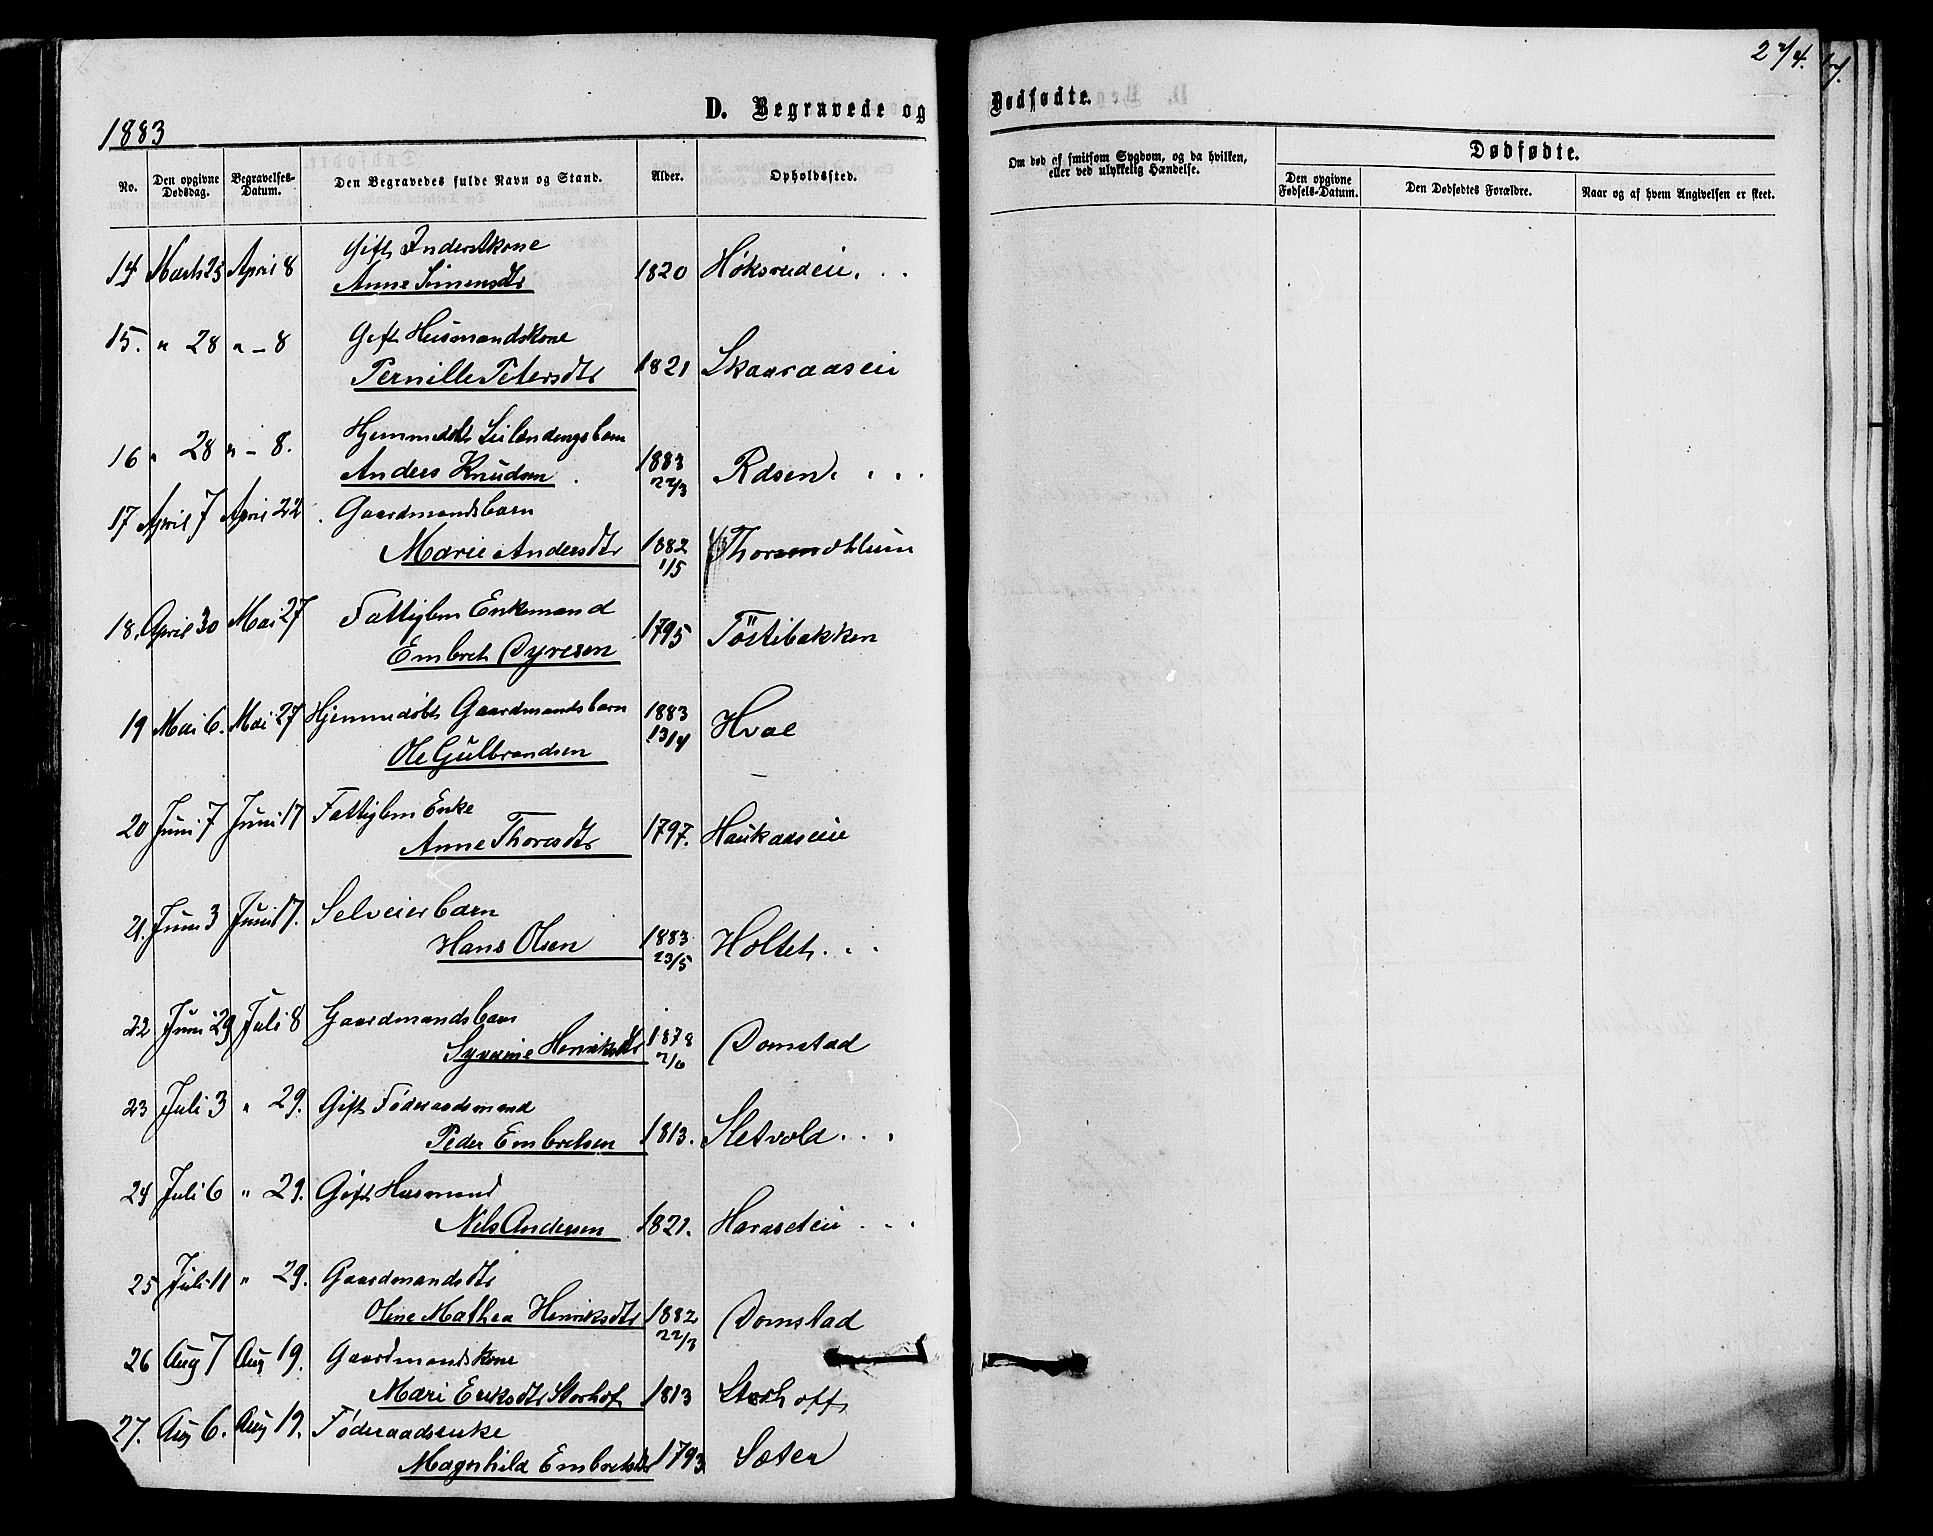 1883
D. Begravede og Dødfødte.
No. Den opgivne Dødsdag. Begravelses-Datum. Den Begravedes fulde Navn og Stand. Alder. Opholdssted.
Om død af smitsom Sygdom, og da hvilken, eller ved ulykkelig Hændelse.
Dødfødte.
Den opgivne Fødsels-Datum. Den Dødfødtes Forældre. Naar og af hvem Angivelsen er skeet.
14 Marts 25 April 8 Gift Inderstkone
Anne Simensdtr 1820 Høksrudeie
15. " 28 " - 8 Gift Husmandskone
Pernille Petersdtr 1821 Skaaraaseie
16 " 28 " - 8. Hjemmedøbt Leilændingsbarn
Anders Knudsen 1883 22/3
17 April 7 April 22 Gaardmandsbarn
Marie Andersdtr 1882 1/5
18. April 30 Mai 27 Fattiglem Enkemand
Embret Dyresen 1795 Töstibakken
19 Mai 6. Mai 27 Hjemmedøbt Gaardmandsbarn
Ole Gulbrandsen 1883 13/4 Hval
20 Juni 7 Juni 17 Fattiglem Enke
Anne Thoresdtr 1797. Haukaaseie
21. Juni 3 Juni 17. Selveierbarn
Hans Olsen 1883 23/5 Holtet
22 Juni 29 Juli 8 Gaardmandsbarn
Henriksdtr 1878 2/6 Domstad
23 Juli 3 " 29. Gift Føderaadsmand
Peder Embretsen 1813. Sletvold
24 Juli 6 " 29. Gift Husmand
Nels Andersen 1821. Haraseteie
25 Juli 11 " 29. Gaardmandsdtr
Oline Mathea Henriksdtr 1882 Domstad
26 Aug 7 Aug 19. Gaardmandskone
Mari Eriksdtr Storhof 1813 Storhoff
27. Aug 6. Aug 19. Føderaadsenke
Magnhild Embretsdtr 1793 Sæter